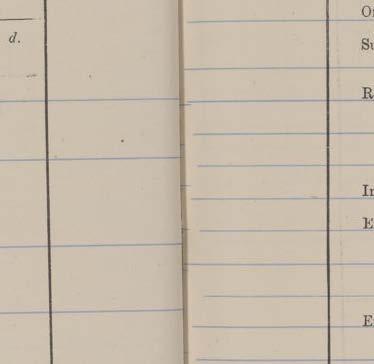 d.
O
Su
R
In
E
E